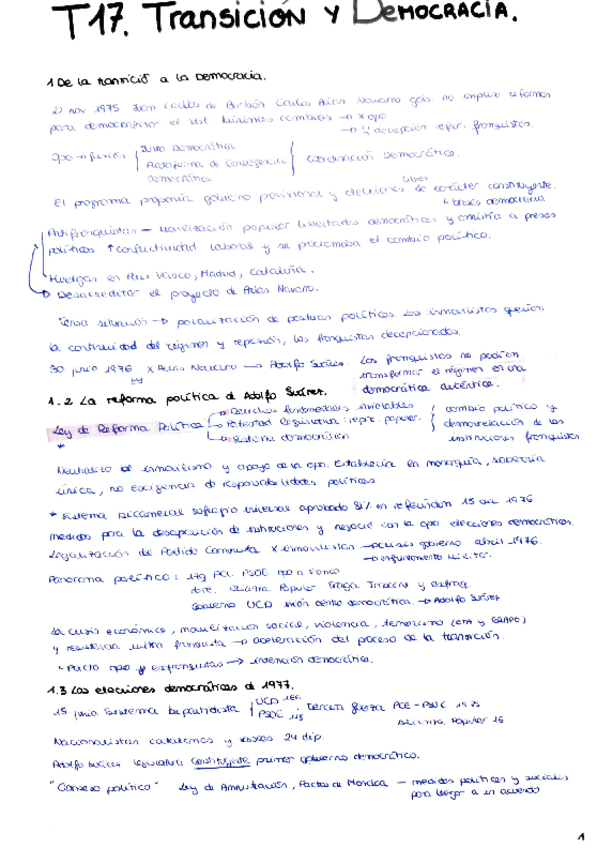 T17. Transición y Democracia.
1 De la transició a la Democracia.
22 nov 1975 Juan Carlos de Borbón Carlos Arias Navarro gob. no impuso reformas
para democratizar el sist. Mínimos cambios → x opo
→ decepción repr. franquistas.
opo → fusión Junta Democrática
Plataforma de Convergencia Democrática
Coordinación Democrática.
El programa proponía gobierno provisional y elecciones libres de carácter constituyente.
↳ bases democracia
Antifranquistas — movilización popular libertades democráticas y amnistía a presos
políticos ↑ conflictividad laboral y se proclamaba el cambio político.
Huelgas en País Vasco, Madrid, Cataluña.
→ Desacreditar el proyecto de Arias Navarro.
Tensa situación → polarización de posturas políticas. Los inmovilistas querían
la continuidad del régimen y represión, los franquistas decepcionados.
30 junio 1976 x Arias Navarro → Adolfo Suárez
Los franquistas no podían
transformar el régimen en una
democrática auténtica.
1.2 La reforma política d Adolfo Suárez.
Ley de Reforma Política → Derechos fundamentales inviolables
→ Potestad legislativa: repr. popular.
→ Sistema democrático
cambio político y
democratización de las
instituciones franquistas
*
Neutralizó el inmovilismo y apoyo de la opo. Establecía en monarquía, soberanía
única, no exigencia de responsabilidades políticas
* sistema bicameral sufragio universal aprobado 81% en referéndum 15 dic 1976
medidas para la desaparición de instituciones y negoció con la opo elecciones democráticas.
Legalización del Partido Comunista x inmovilistas → crisis gobierno abril 1976.
→ Militar.
Panorama político: PCE PSOE
Alianza Popular Fraga Iribarne
Gobierno UCD unión centro democrática. → Adolfo Suárez
La crisis económica, movilización social, violencia, terrorismo (ETA y GRAPO)
y resistencia ultra franquista → aceleración del proceso de la transición.
Pacto opo y exfranquistas → intención democrática.
1.3 Las elecciones democráticas d 1977.
15 junio sistema bipartidista UCD
PSOE
tercera fuerza PCE-PSUC
Alianza Popular 16
Nacionalistas catalanes y vascos 24 dip.
Adolfo Suárez legislatura constituyente primer gobierno democrático.
"Consenso político" Ley de Amnistía, Pactos de Moncloa — medidas políticas y sociales
para llegar a un acuerdo
1